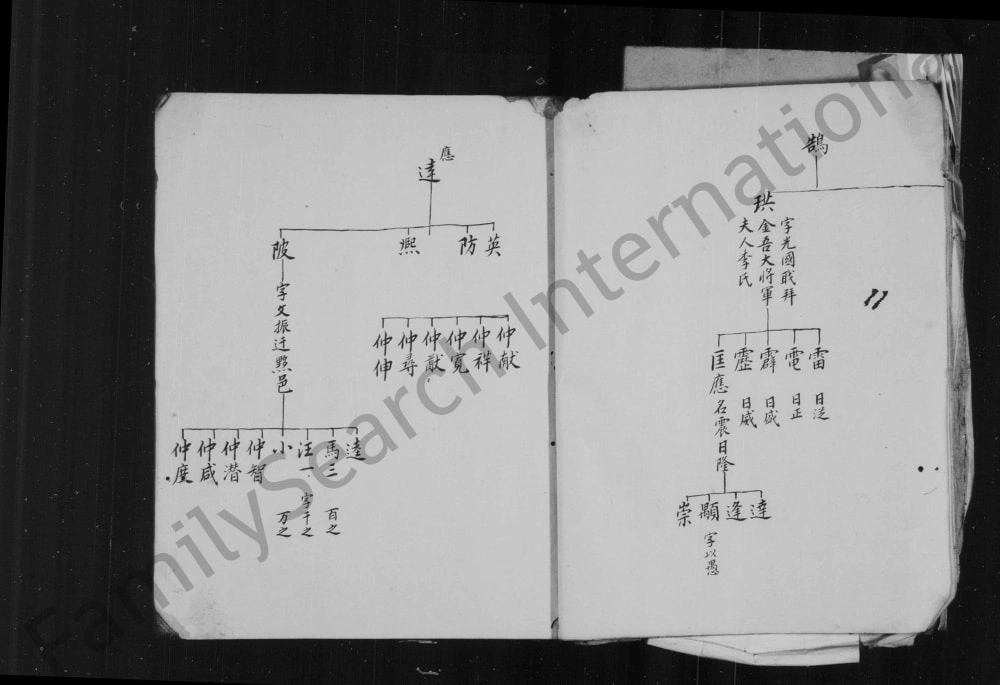 鵠
珙
字光國戰拜
金吾大將軍
夫人李氏
雷 日泛
電 日正
霹 日盛
靂 日威
匡應名震日隆
達
逢
顯 字以愚
崇
應
達
英
防
熙
陂
字文振迁黟邑
仲献
仲祥
仲寬
仲猷
仲尋
仲伸
逵
馬三 百之
汪一 字千之
小 万之
仲智
仲潜
仲咸
仲度
FamilySearch International